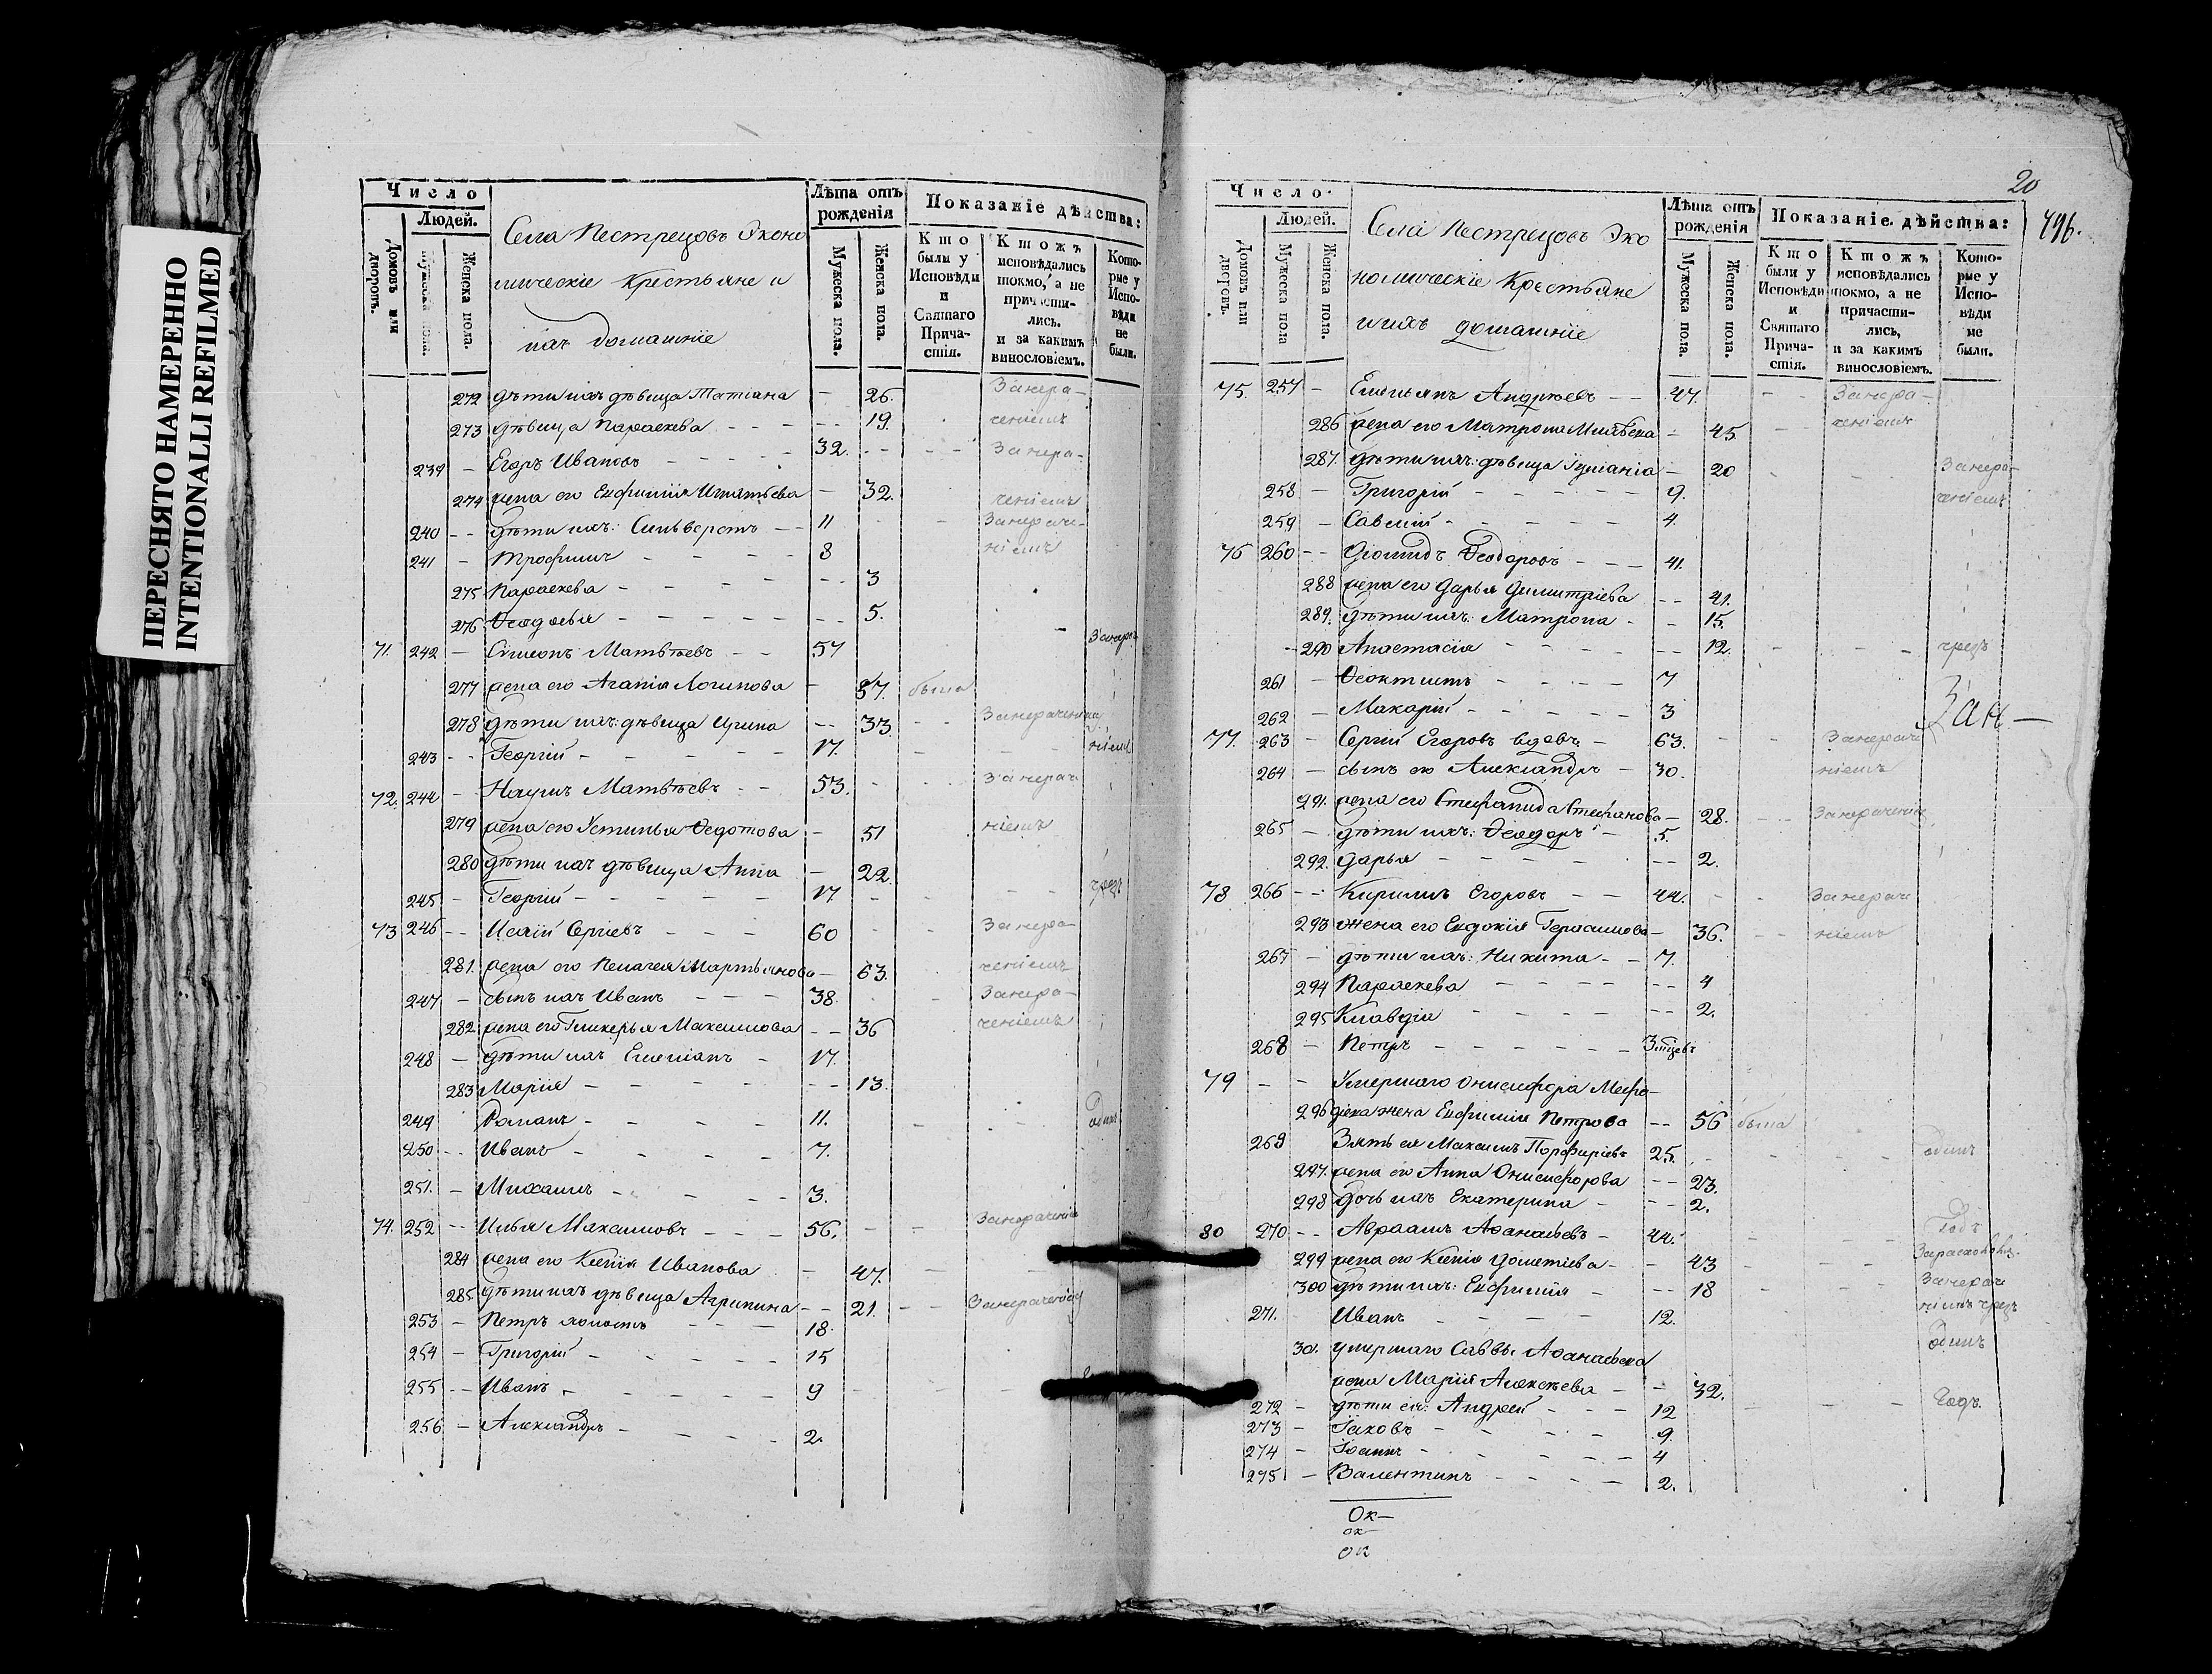 ПЕРЕСНЯТО НАМЕРЕННО
INTENTIONALLI REFILMED
Число
Людей.
Домовъ или дворовъ.
Мужеска пола.
Женска пола.
Села Пестрецовъ Эконо
мическіе Крестьяне и
ихъ домашніе
Лѣта отъ рожденія
Мужеска пола.
Женска пола.
Показаніе дѣйства:
Кто были у Исповѣди и Святаго Причастія.
Ктожъ исповѣдались токмо, а не причастились. и за какимъ винословіемъ.
Которые у Исповѣди не были.
272 дѣти ихъ дѣвица Татіана – 26. Занера-
273 дѣвица Параскева – – – 19. ченіемъ
239 – Егоръ Ивановъ – – – 32. Занера-
274 жена его Евфимія Игнатьева – 32. ченіемъ
240 – – дѣти ихъ: Сильверстъ – – 11 Занераче-
241 – Трофимъ – – – – 8 ніемъ
275 Параскева – – – – – 3
276 Ѳеодосья – – – – – – 5.
71. 242 – Сѵмеонъ Матвѣевъ – – 57 Занерач
277 жена его Агапія Логинова – 57. была
278 дѣти ихъ: дѣвица Ирина – – 33. Занераченіемъ
243 – – Георгій – – – 17. ніемъ
72. 244 – Наумъ Матвѣевъ – – 53. Занерач
279 жена его Устинья Ѳедотова – 51 ніемъ
280 дѣти ихъ дѣвица Анна – 22.
245 – Георгій – – – – – 17 чрезъ
73 246 – – Исаій Сергіевъ – – – 60 Занера-
281. жена его Пелагея Мартьянова – 63. ченіемъ
247 – сынъ ихъ Иванъ – – – 38. Занера-
282 жена его Гликерья Максимова – – 36 ченіемъ
248 – дѣти ихъ Емеліанъ – 17.
283 Марія – – – – – – 13.
249 Романъ – – – – 11. одинъ
250 – – Иванъ – – – – 7.
251. – Михаилъ – – – – 3.
74. 252 – – Илья Максимовъ – – – 56. Занераченіе
284 жена его Ксенія Иванова – 47.
285 дѣти ихъ дѣвица Агрипина – – 21. Занераченіемъ
253 – Петръ холостъ – – – 18.
254 – Григорій – – – – – 15
255 – – Иванъ – – – – – 9
256 – Александръ – – – – 2.
20
496.
Число.
Людей.
Домовъ или дворовъ.
Мужеска пола
Женска пола.
Села Пестрецовъ Эко
номическіе Крестьяне
и ихъ домашніе
Лѣта отъ рожденія
Мужеска пола.
Женска пола.
Показаніе дѣйства:
Кто были у Исповѣди и Святаго Причастія.
Ктожъ исповѣдались токмо, а не причастились, и за какимъ винословіемъ.
Которые у Исповѣди не были.
75. 257 – Емельянъ Андреевъ – – 47. Занера-
286 жена его Матрона – 45. ченіемъ
287. дѣти ихъ: дѣвица Іуліанія – 20 Занера-
258 – Григорій – – – – – 9. ченіемъ
259 – Савелій – – – – – 4.
76 260 – – Діомидъ Ѳеодоровъ – – – 41.
288 жена его Дарья Димитріева – – 41.
289. дѣти ихъ: Матрона – – 15.
290 Анастасія – – – – – – 12. чрезъ
261 – Ѳеоктистъ – – – – 7
262 – Макарій – – – – – 3 Зан –
77. 263 – Сергій Егоровъ вдовъ – 63. Занерач
264 – сынъ его Александръ – 30. ніемъ
291. жена его Стефанида Стефанова – 28. Занераченіе
265 – дѣти ихъ: Ѳеодоръ – 5.
292. Дарья – – – – – – – 2.
78 266 – – Кирилъ Егоровъ – – 44. Занерач
293 жена его Евдокія Герасимова – 36. ніемъ
267 – дѣти ихъ: Никита – – 7.
294 Параскева – – – – – – 4
295 Клавдія – – – – – – 2.
268 – Петръ – – – – – – 3
79 – – Умершаго Онисифора Меѳо-
296 діева жена Евфимія Петрова – – 56 была
269 Зять ея Максимъ Порфиріевъ 25. одинъ
297. жена его Анна Онисифорова – – 23.
298 дочь ихъ Екатерина – – – 2.
80 270 – – Авраамъ Аѳанасьевъ – 44. годъ
299 жена его Ксенія Дометіева – – 43
300 дѣти ихъ: Евфимія – – – 18 Занерач
271. Иванъ – – – – 12. ніемъ чрезъ
301. умершаго Саввы Аѳанасьева одинъ
жена Марія Алексѣева – – 32.
272 – дѣти ея: Андрей – – – 12 годъ
273 – Іаковъ – – – – 9.
274 – Іоаннъ – – – – 4
275 – Валентинъ – – – – 2.
Ок–
ок–
ок